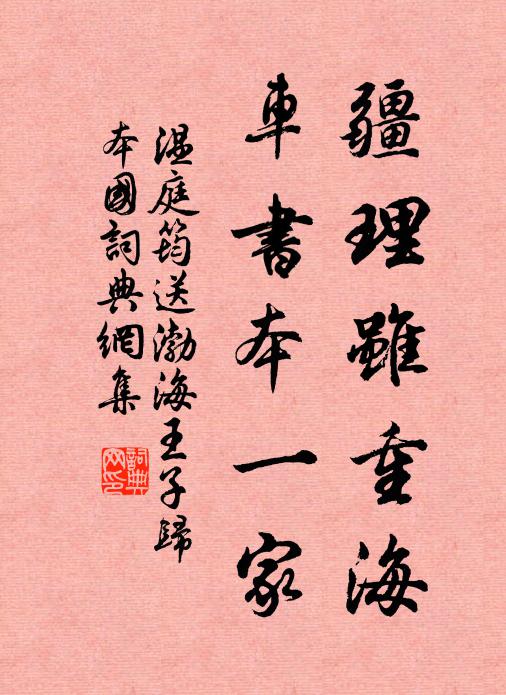 疆理雖重海
車書本一家
溫庭筠送渤海王子歸
本國詞典網集
詞典
网印